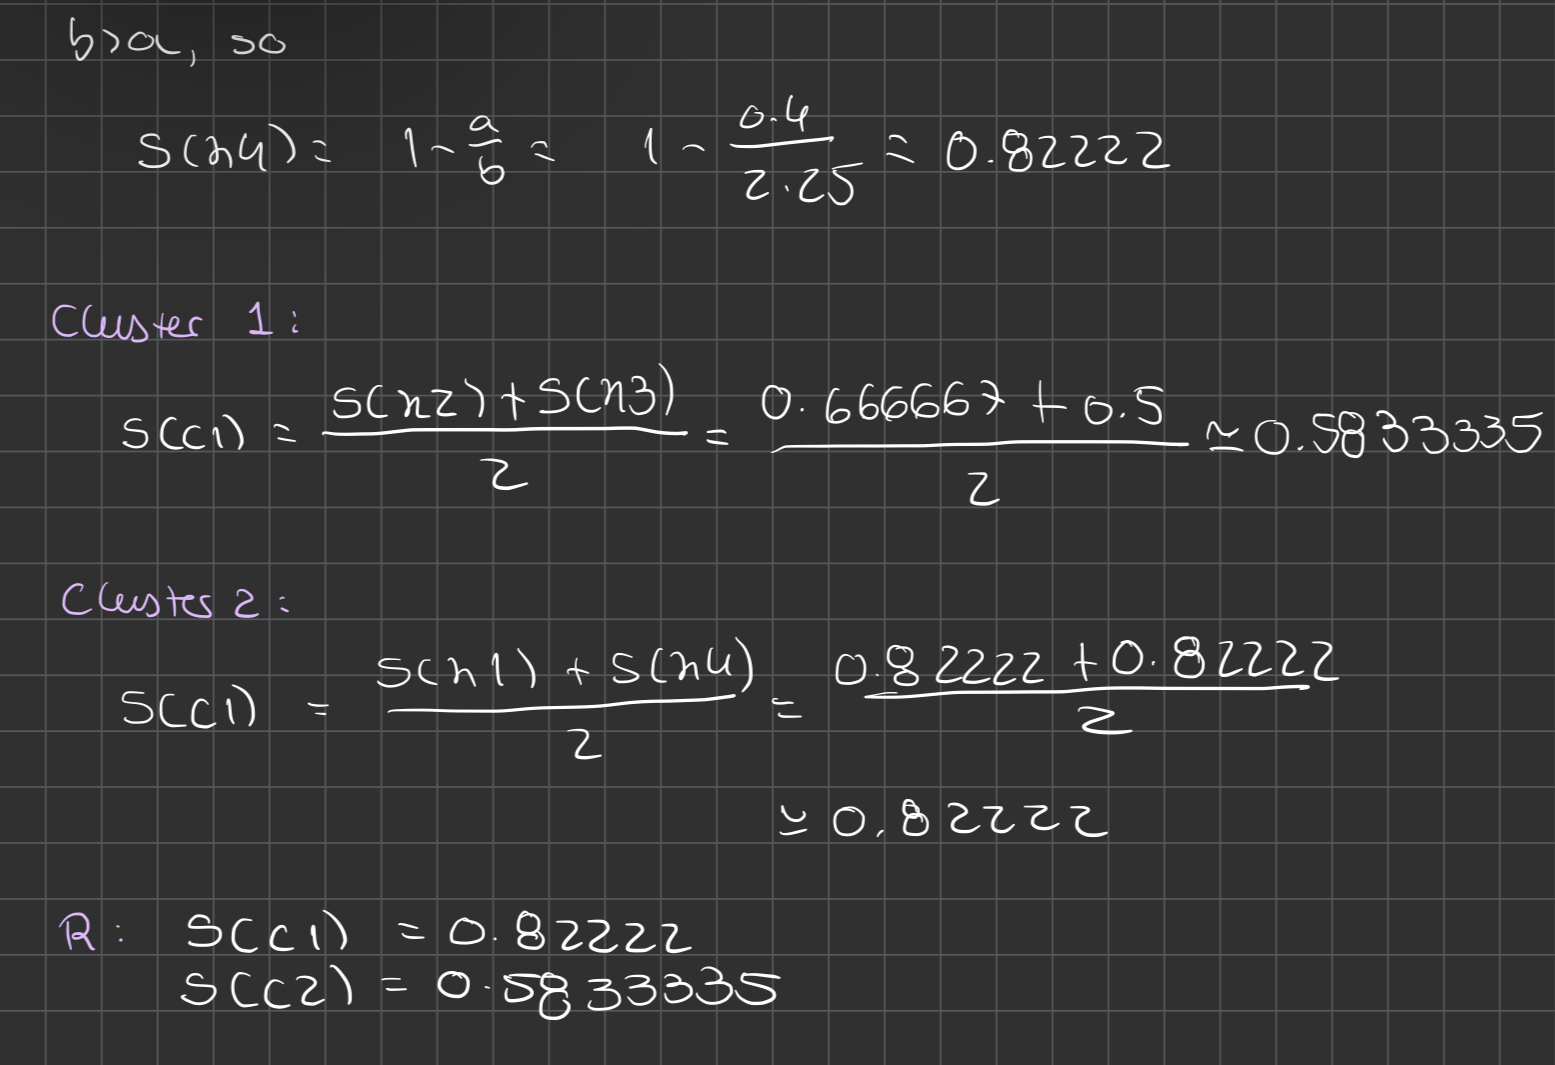 b>a, so
S(x4) = 1 - a/b = 1 - 0.4/2.25 = 0.82222
Cluster 1:
S(C1) = (S(x2) + S(x3))/2 = (0.666667 + 0.5)/2 ≃ 0.5833335
Cluster 2:
S(C1) = (S(x1) + S(x4))/2 = (0.82222 + 0.82222)/2
≃ 0.82222
R: S(C1) = 0.82222
S(C2) = 0.5833335